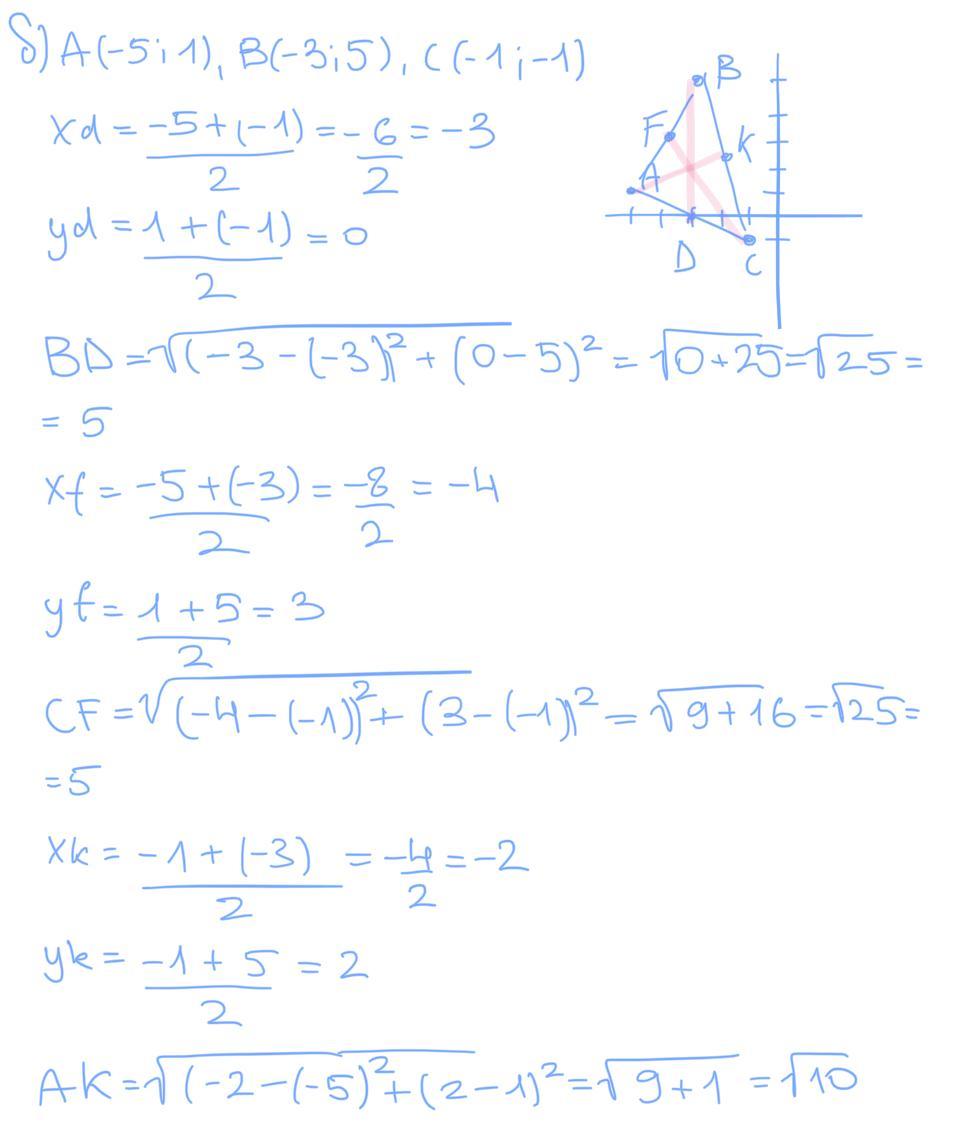 б) A(-5;1), B(-3;5), C(-1;-1)
xd = (-5+(-1))/2 = -6/2 = -3
yd = (1+(-1))/2 = 0
B
F
K
A
D
C
BD = √((-3-(-3))² + (0-5)² = √0+25 = √25 =
= 5
xf = (-5+(-3))/2 = -8/2 = -4
yf = (1+5)/2 = 3
CF = √((-4-(-1))² + (3-(-1))² = √9+16 = √25 =
= 5
xk = (-1+(-3))/2 = -4/2 = -2
yk = (-1+5)/2 = 2
AK = √(-2-(-5)² + (2-1)² = √9+1 = √10